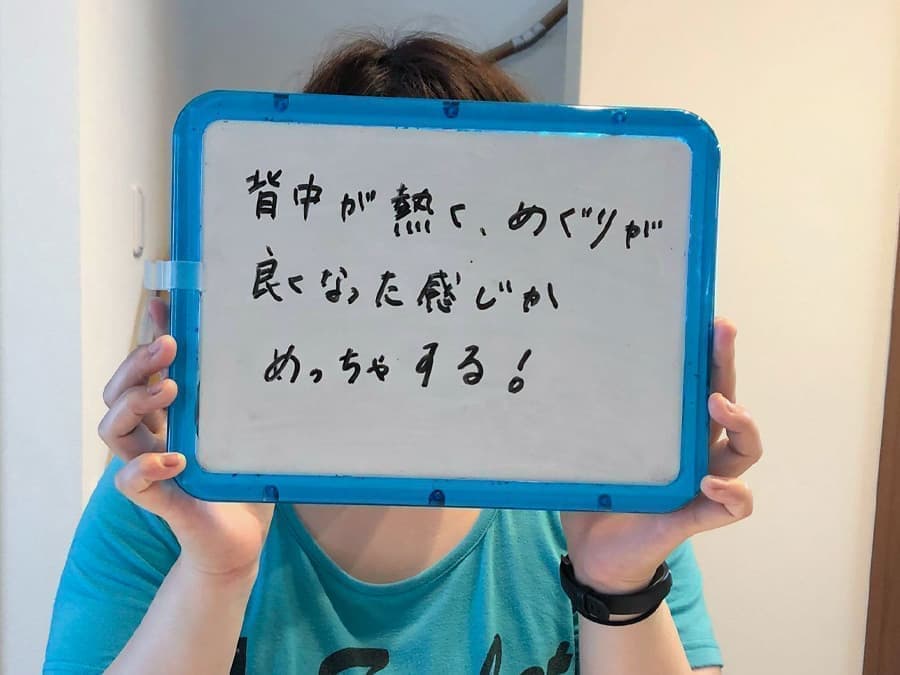 背中が熱く、めぐりが
良くなった感じが
めっちゃする!